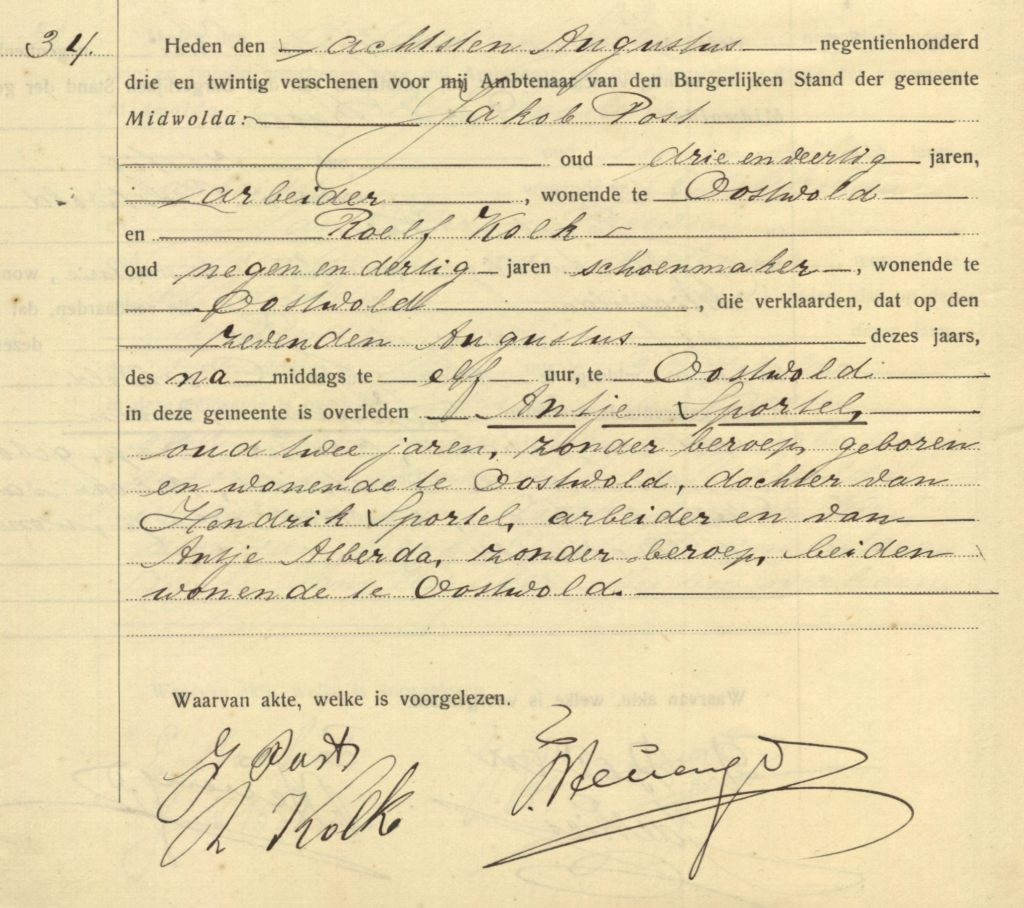 34. Heden den achtsten Augustus negentienhonderd
drie en twintig verschenen voor mij Ambtenaar van den Burgerlijken Stand der gemeente
Midwolda: Jakob Post
oud drie en veertig jaren,
arbeider, wonende te Oostwold
en Roelf Kolk
oud negen en dertig jaren schoenmaker, wonende te
Oostwold, die verklaarden, dat op den
zevenden Augustus dezes jaars,
des na middags te elf uur, te Oostwold
in deze gemeente is overleden Antje Sportel,
oud twee jaren, zonder beroep, geboren
en wonende te Oostwold, dochter van
Hendrik Sportel, arbeider en van
Antje Alberda, zonder beroep, beiden
wonende te Oostwold.
Waarvan akte, welke is voorgelezen.
J Post
R Kolk